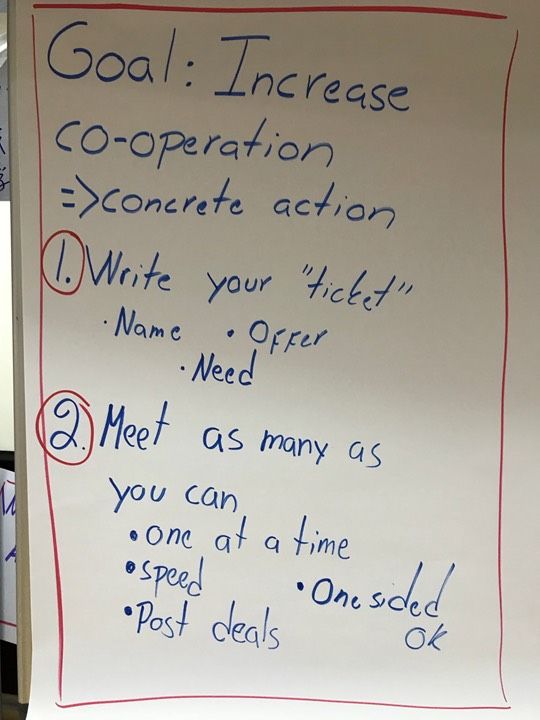 Goal: Increase
co-operation
=>concrete action
1. Write your "ticket"
• Name • Offer
• Need
2. Meet as many as
you can
• one at a time
• speed • One sided
OK
• Post deals